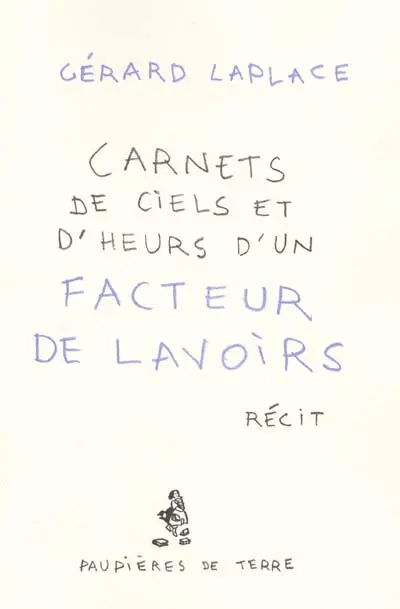 GÉRARD LAPLACE
CARNETS
DE CIELS ET
D'HEURS D'UN
FACTEUR
DE LAVOIRS
RÉCIT
PAUPIÈRES DE TERRE